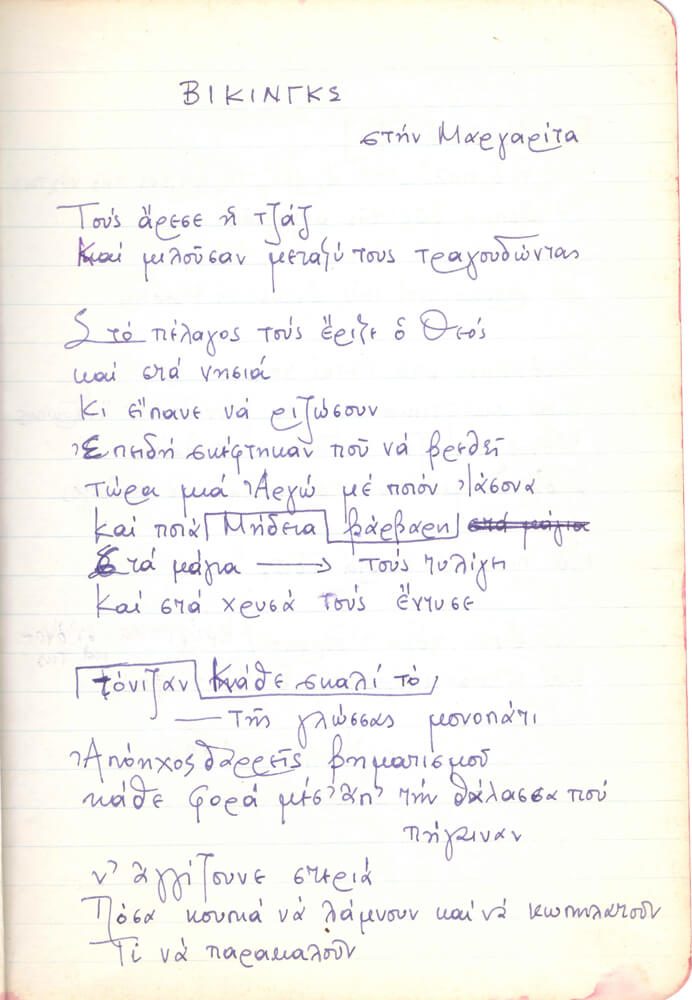 ΒΙΚΙΝΓΚΣ
στήν Μαργαρίτα
Τούς ἄρεσε ἡ τζάζ
Καί μιλοῦσαν μεταξύ τους τραγουδώντας
Στό πέλαγος τούς ἔριξε ὁ Θεός
καί στά νησιά
Κι εἴπανε νά ριζώσουν
Ἐπειδή σκέφτηκαν ποῦ νά βρεθεῖ
τώρα μιά Ἀργώ μέ ποιόν Ἰάσονα
καί ποιά Μήδεια βάρβαρη στά μάγια
Στά μάγια → τούς τυλίγει
Καί στά χρυσά τούς ἔντυσε
τόνιζαν Κάθε σκαλί τό
— τῆς γλώσσας μονοπάτι
Ἀπόηχος θαρρεῖς βηματισμοῦ
κάθε φορά μέσ' ἀπ' τήν θάλασσα πού
πήγαιναν
ν' ἀγγίζουνε στεριά
Πόσα κουπιά νά λάμνουν καί νά κωπηλατοῦν
Τί νά παρακαλοῦν